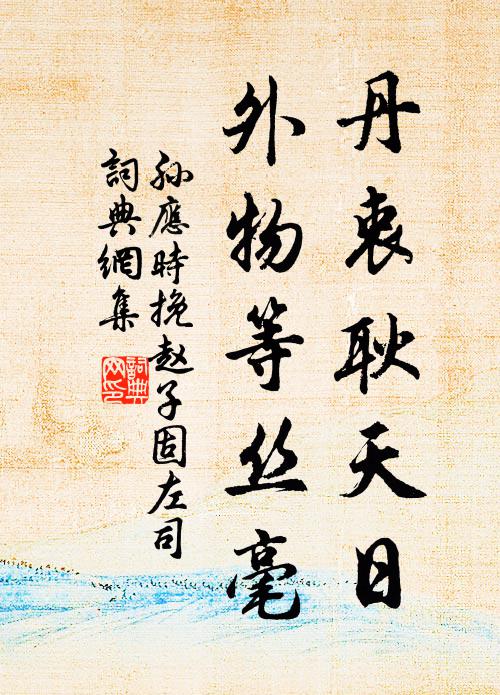 丹衷耿天日
外物等丝毫
孙應時挽赵子固左司
詞典網集
詞典
网印